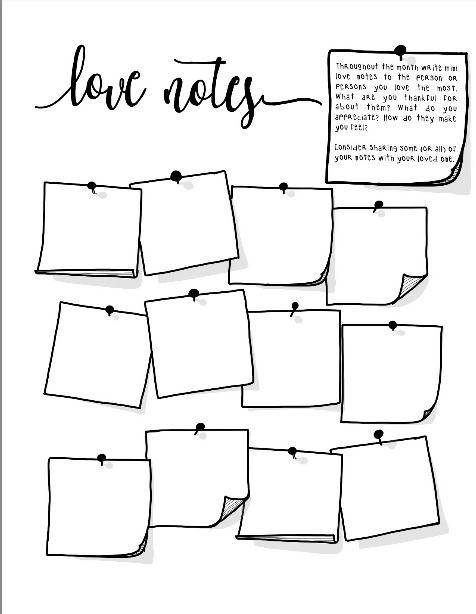 love notes
Throughout the month write mini
love notes to the person or
persons you love the most.
What are you thankful for
about them? What do you
appreciate? How do they make
you feel?
Consider sharing some (or all) of
your notes with your loved one.